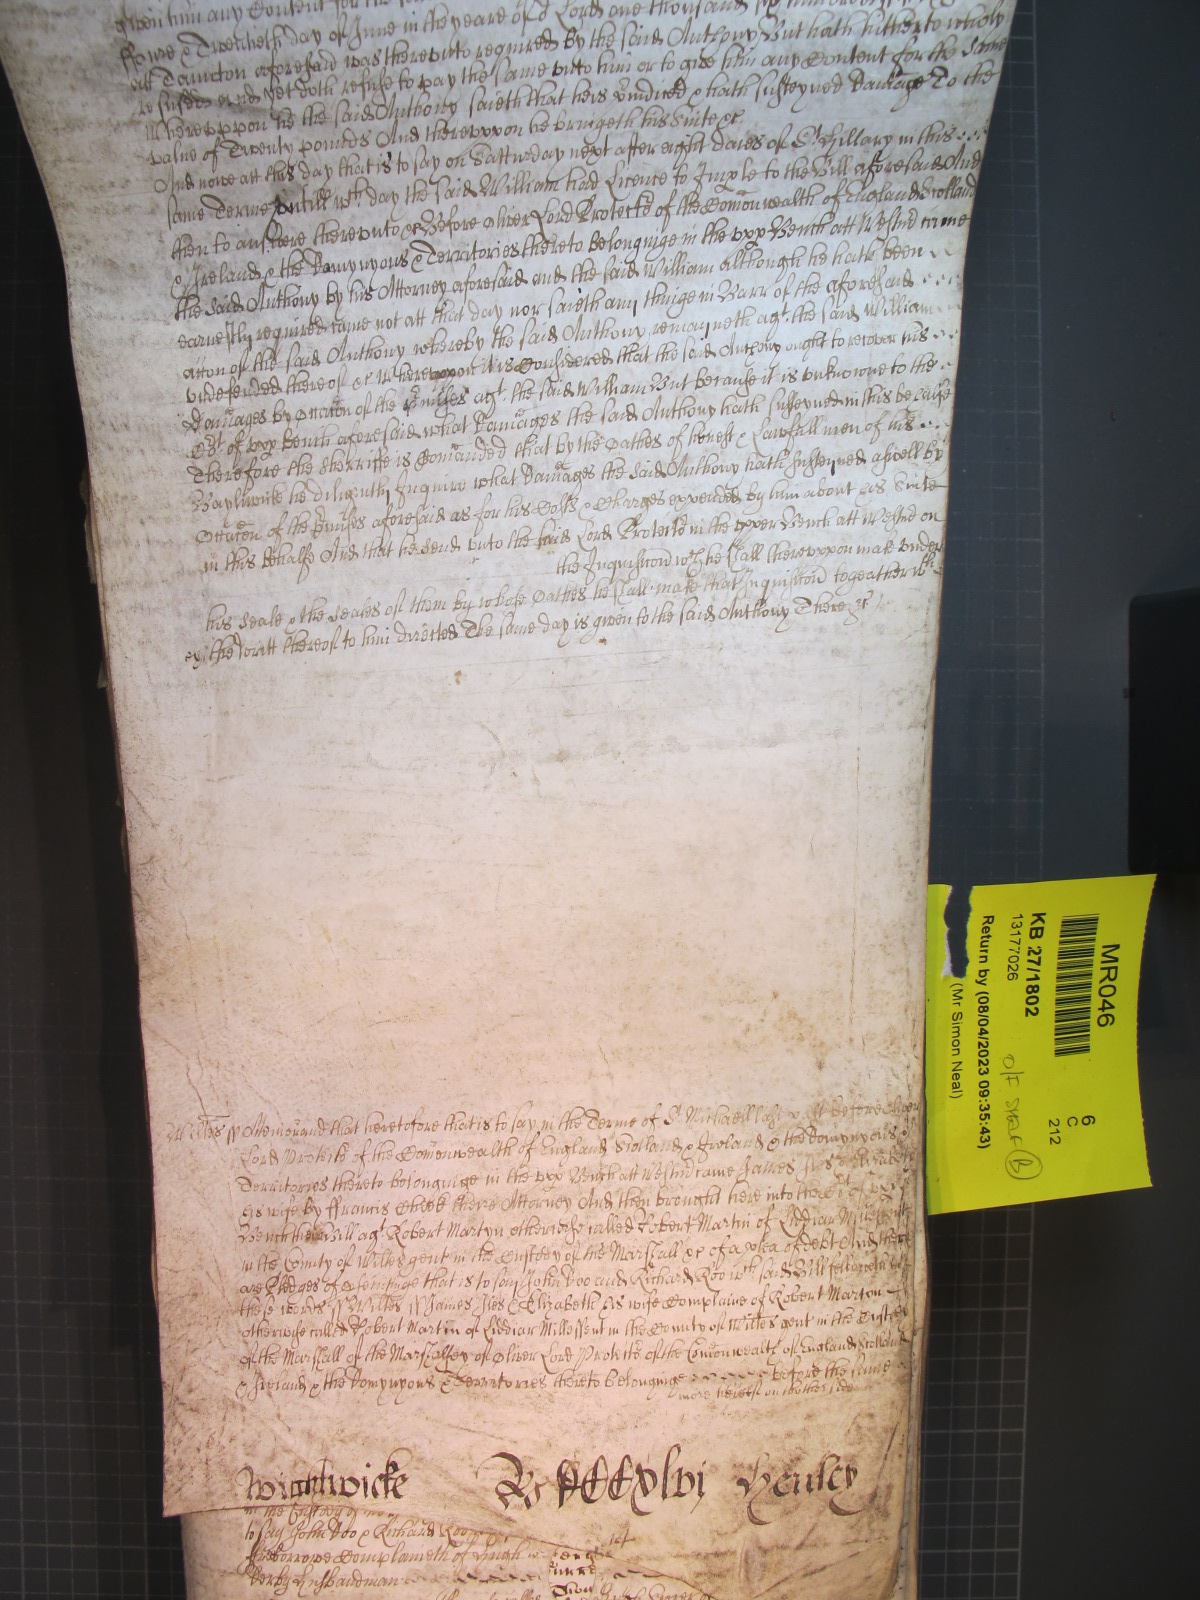 given him any Content for the
ffowre & Twentieth day of June in the yeare of or Lord one thousand six hundred
att Taunton aforesaid was therevnto required by the said Anthony But hath hitherto wholy
refused and yet doth refuse to pay the same vnto him or to give him any Content for the same
Wherevppon he the said Anthony saieth that heis Indused & hath susteyned Damage To the
value of Twenty pounds And therevppon he bringeth his Suite &c
And nowe att this day that is to say on Satturday next after eight daies of St Hillary in this
same Terme vntill wch day the said William had Licence to Imple to the Bill aforesaid And
then to answere therevnto &c Before Oliver Lord Protector of the Comonwealth of England Scotland
& Ireland & the Domynyons & Territories thereto belonginge in the vpp Bench att Westmr came
the said Anthony by his Attorney aforesaid and the said William Although he hath been
earnestly required came not att that day nor saieth any thinge in Barr of the aforesaid
accon of the said Anthony whereby the said Anthony remayneth agt the said William
vndefended thereof &c Wherevppon it is Considered that the said Anthony ought to recover his
Damages by Occacon of the Pmises agt the said William But because it is vnknowne to the
Crt of vpp Bench aforesaid what Damages the said Anthony hath susteyned in this behalfe
Therefore the Sherriffe is Comanded that by the Oathes of honest & Lawfull men of his
Baylywicke he diligently Inquire what Damages the said Anthony hath susteyned aswell by
Occacon of the Pmises aforesaid as for his Costs & Charges expended by him about his Suite
in this behalfe And that he send vnto the said Lord Protector in the vpper Bench att Westmr on
the Inquisicon wch he shall therevppon make vnder
his Seale & the Seales of them by whose Oathes he shall make that Inquisicon togeather wth
the writt thereof to him directed The same day is given to the said Anthony There &c
Wiltes ss Memorand that heretofore that is to say in the Terme of St Michaell last past Before Oliver
Lord Protector of the Comonwealth of England Scotland & Ireland & the Domynyons &
Territories thereto belonginge in the vpp Bench att Westmr came James Ives & Elizabeth
his wife by ffrancis Cheek theire Attorney And then brought here into the Crt of vpp
Bench their Bill agt Robert Martyn otherwise called Robert Martin of Liddiar Millessent
in the County of Wiltes gent in the Custody of the Marshall &c of a plea of debt And there
are Pledges of Prosecutinge that is to say John Doo and Richard Roo wch said Bill followeth in
these words ss Wiltes ss James Ives & Elizabeth his wife Complaine of Robert Martyn
otherwise called Robert Martin of Liddiar Millessent in the County of Wiltes gent in the Custody
of the Marshall of the Marshalsey of Oliver Lord Protector of the Comonwealth of England Scotland
& Ireland & the Domynyons & Territories thereto belonginge before the same
more hereof on thother side
Wightwicke Ro CCCxlvj Henley
in the Custody of
to say John Doo & Richard Roo
Complaineth of Hugh
Derby Husbandman
MR046
KB 27/1802
13177026
Return by (08/04/2023 09:35:43)
(Mr Simon Neal)
6
C
212
O/F Staff B